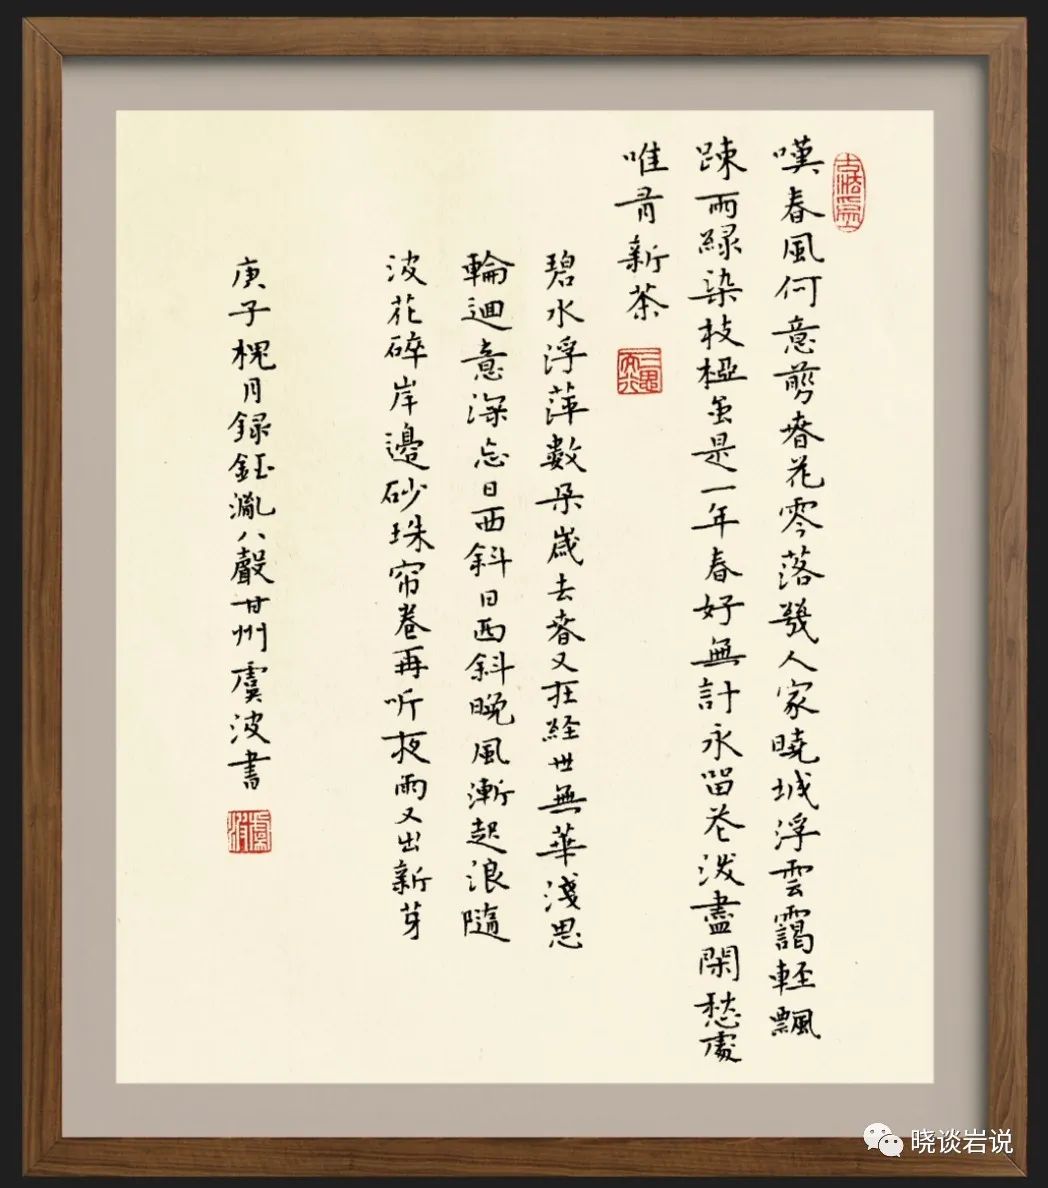 嘆春風何意剪春花零落幾人家曉城浮雲靄輕飄
踈雨緑染枝椏虽是一年春好無計永留花泼盡閑愁處
唯有新茶
碧水浮萍數朵歲去春又在経世無華淺思
輪迴意深忘日西斜日西斜晚風漸起浪隨
波花碎岸邊砂珠帘卷再听夜雨又出新芽
庚子槐月録鈺八聲甘州虞波書
虞波
晓谈岩说